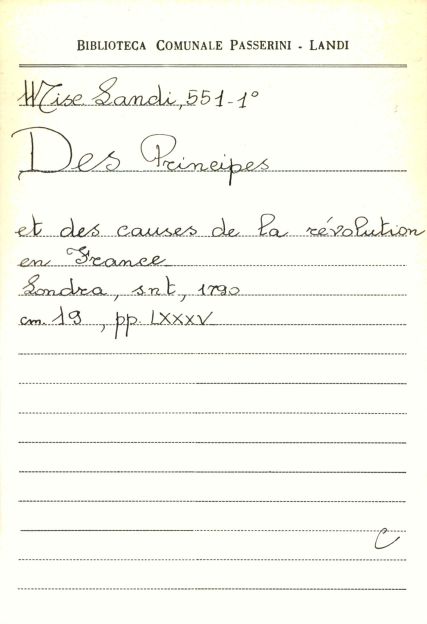 BIBLIOTECA COMUNALE PASSERINI - LANDI
Misc Landi, 551-1°
Des Principes
et des causes de la révolution
en France
Londra, snt, 1790
cm. 19, pp. LXXXV
C